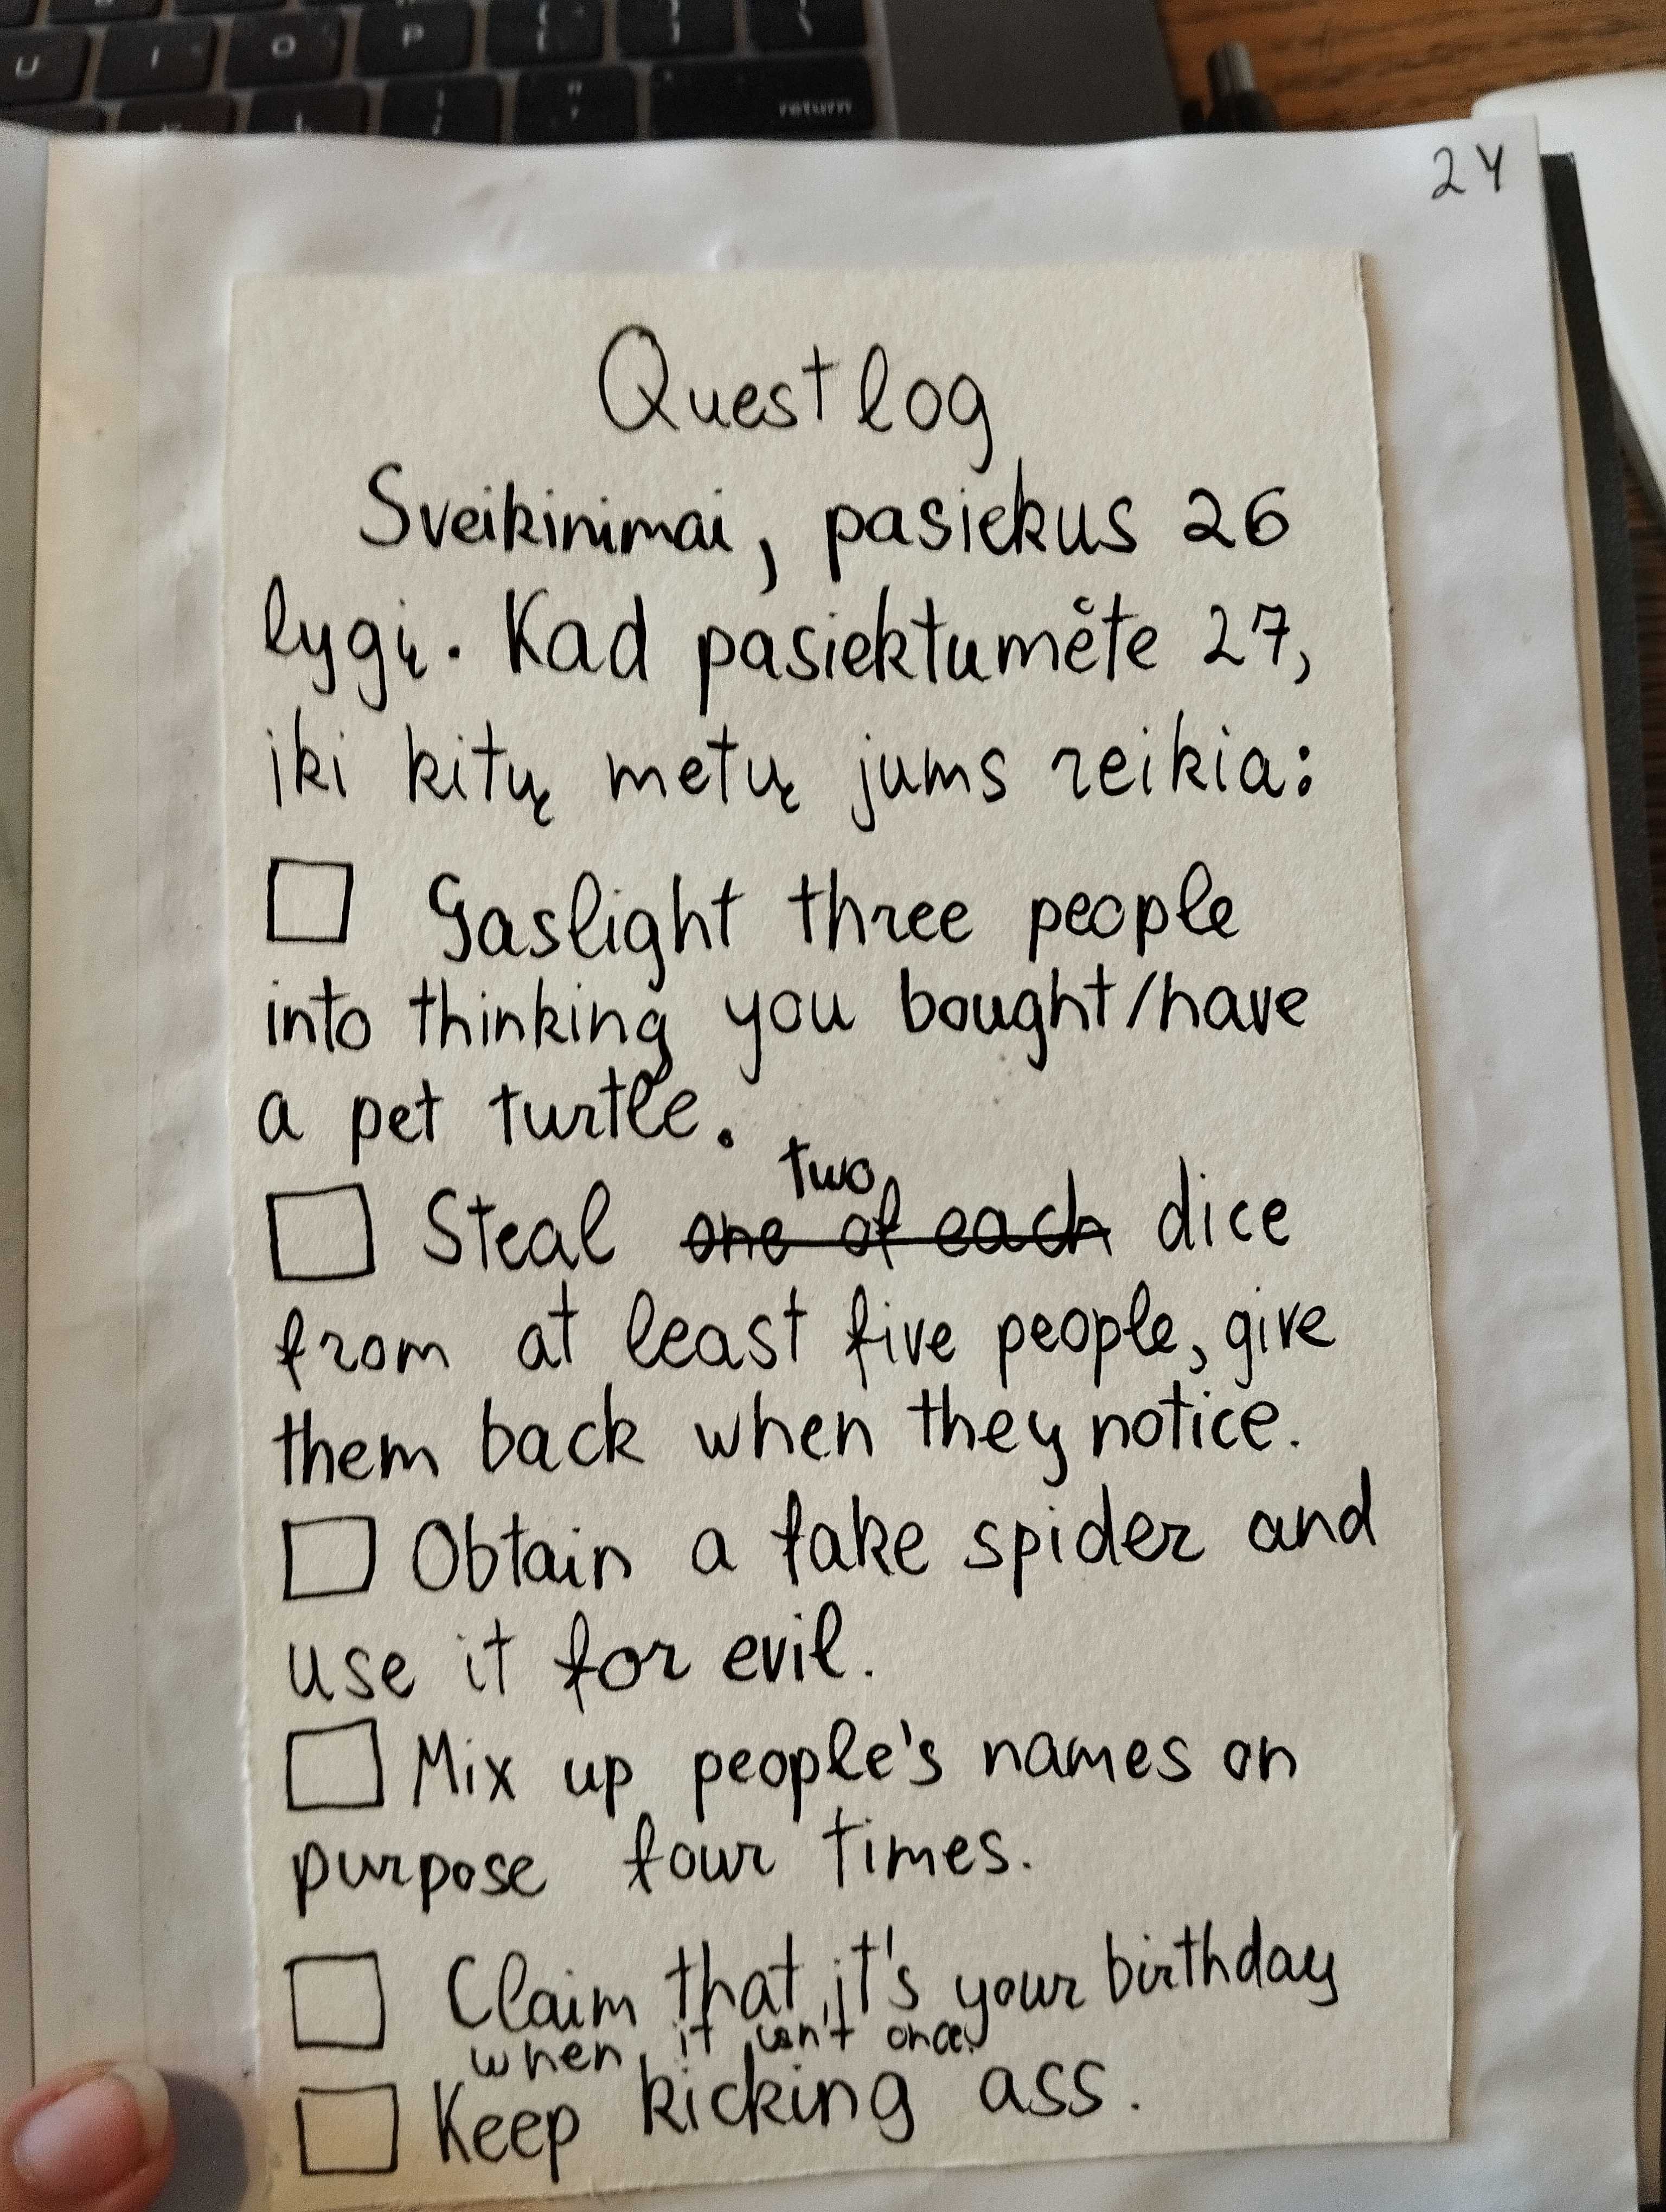 U I O P { [ } ] | \
K L : ; " ' return
24
Quest log
Sveikinimai, pasiekus 26
lygį. Kad pasiektumėte 27,
iki kitų metų jums reikia:
Gaslight three people
into thinking you bought/have
a pet turtle.
two
Steal one of each dice
from at least five people, give
them back when they notice.
Obtain a fake spider and
use it for evil.
Mix up people's names on
purpose four times.
Claim that it's your birthday
when it isn't once.
Keep kicking ass.